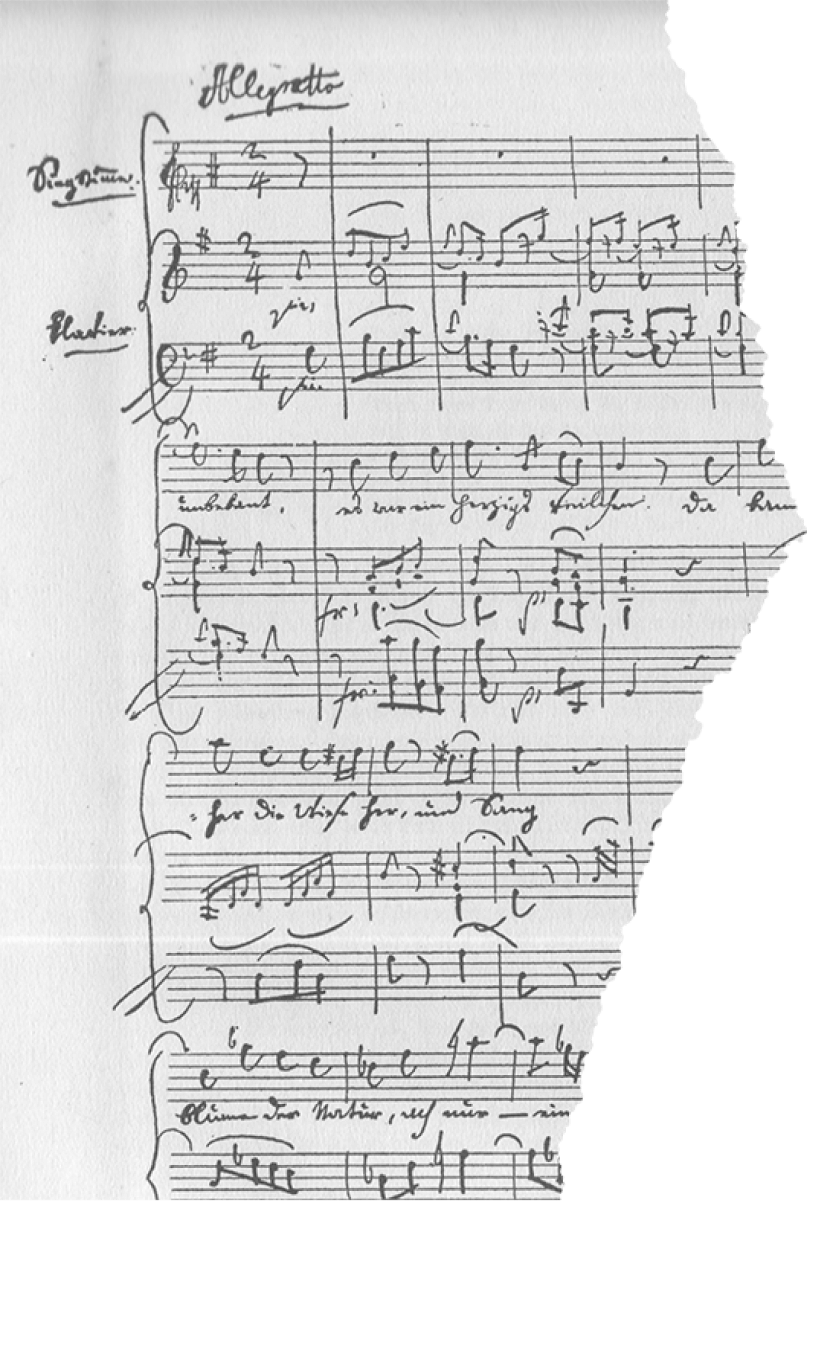 Allegretto
Singstimme.
2/4
2/4
Klavier.
2/4
unbekant. es war ein herzigs Veilchen. da kam
for: p
for: p
-her die Wiese her, und Sang
Blume der Natur, ach nur — ein